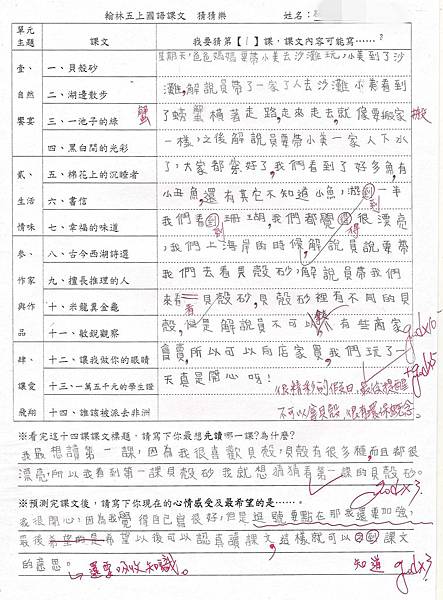 翰林五上國語課文 猜猜樂 姓名：
單元主題 課文 我要猜第【1】課，課文內容可能寫……？
壹、自然饗宴
一、貝殼砂
二、湖邊散步
三、一池子的綠
四、黑白間的光彩
貳、生活情味
五、棉花上的沉睡者
六、書信
七、幸福的味道
參、作家與作品
八、古今西湖詩選
九、擅長推理的人
十、米龍翼金龜
十一、敏銳觀察
肆、讓愛飛翔
十二、讓我做你的眼睛
十三、一萬五千元的學生證
十四、誰該被派去非洲
星期天，爸爸媽媽要帶小美去沙灘玩，小美到了沙
灘，解說員帶了一家了人去沙灘小美看到
了螃蟹橫著走路走來走去就像要搬家
一樣，之後解說員要帶小美一家人下水
了，大家都穿好了，我們看到了好多魚有
小丑魚，還有其它不知道小魚，游到一半
我們看到珊瑚，我們都覺得很漂亮
，我們上海岸的時候，解說員說要帶
我們去看貝殼砂，解說員帶我們
來看貝殼砂，貝殼砂裡有不同的貝
殼，但是解說員不可以，有些商家
賣，所以可以向店家買，我們玩了一
天真是開心呀！
蟹
搬
到
得
看
good×10
+good×5
你精彩的假日，最後提醒
不可以貪貝殼，很有環保概念。
※看完這十四課課文標題，請寫下你最想先讀哪一課？為什麼？
我最想讀第一課，因為我很喜歡貝殼，貝殼有很多種，而且都很
漂亮，所以我看到第一課貝殼砂我就想猜猜看第一課的貝殼砂。
good×3
※預測完課文後，請寫下你現在的心情感受及最希望的是……。
我很開心，因為我覺得自己寫很好，但是逗號要點在那我還要加強，
最後希望以後可以認真讀課文，這樣就可以知道課文
的意思。 還要吸收知識。 知道 good×3